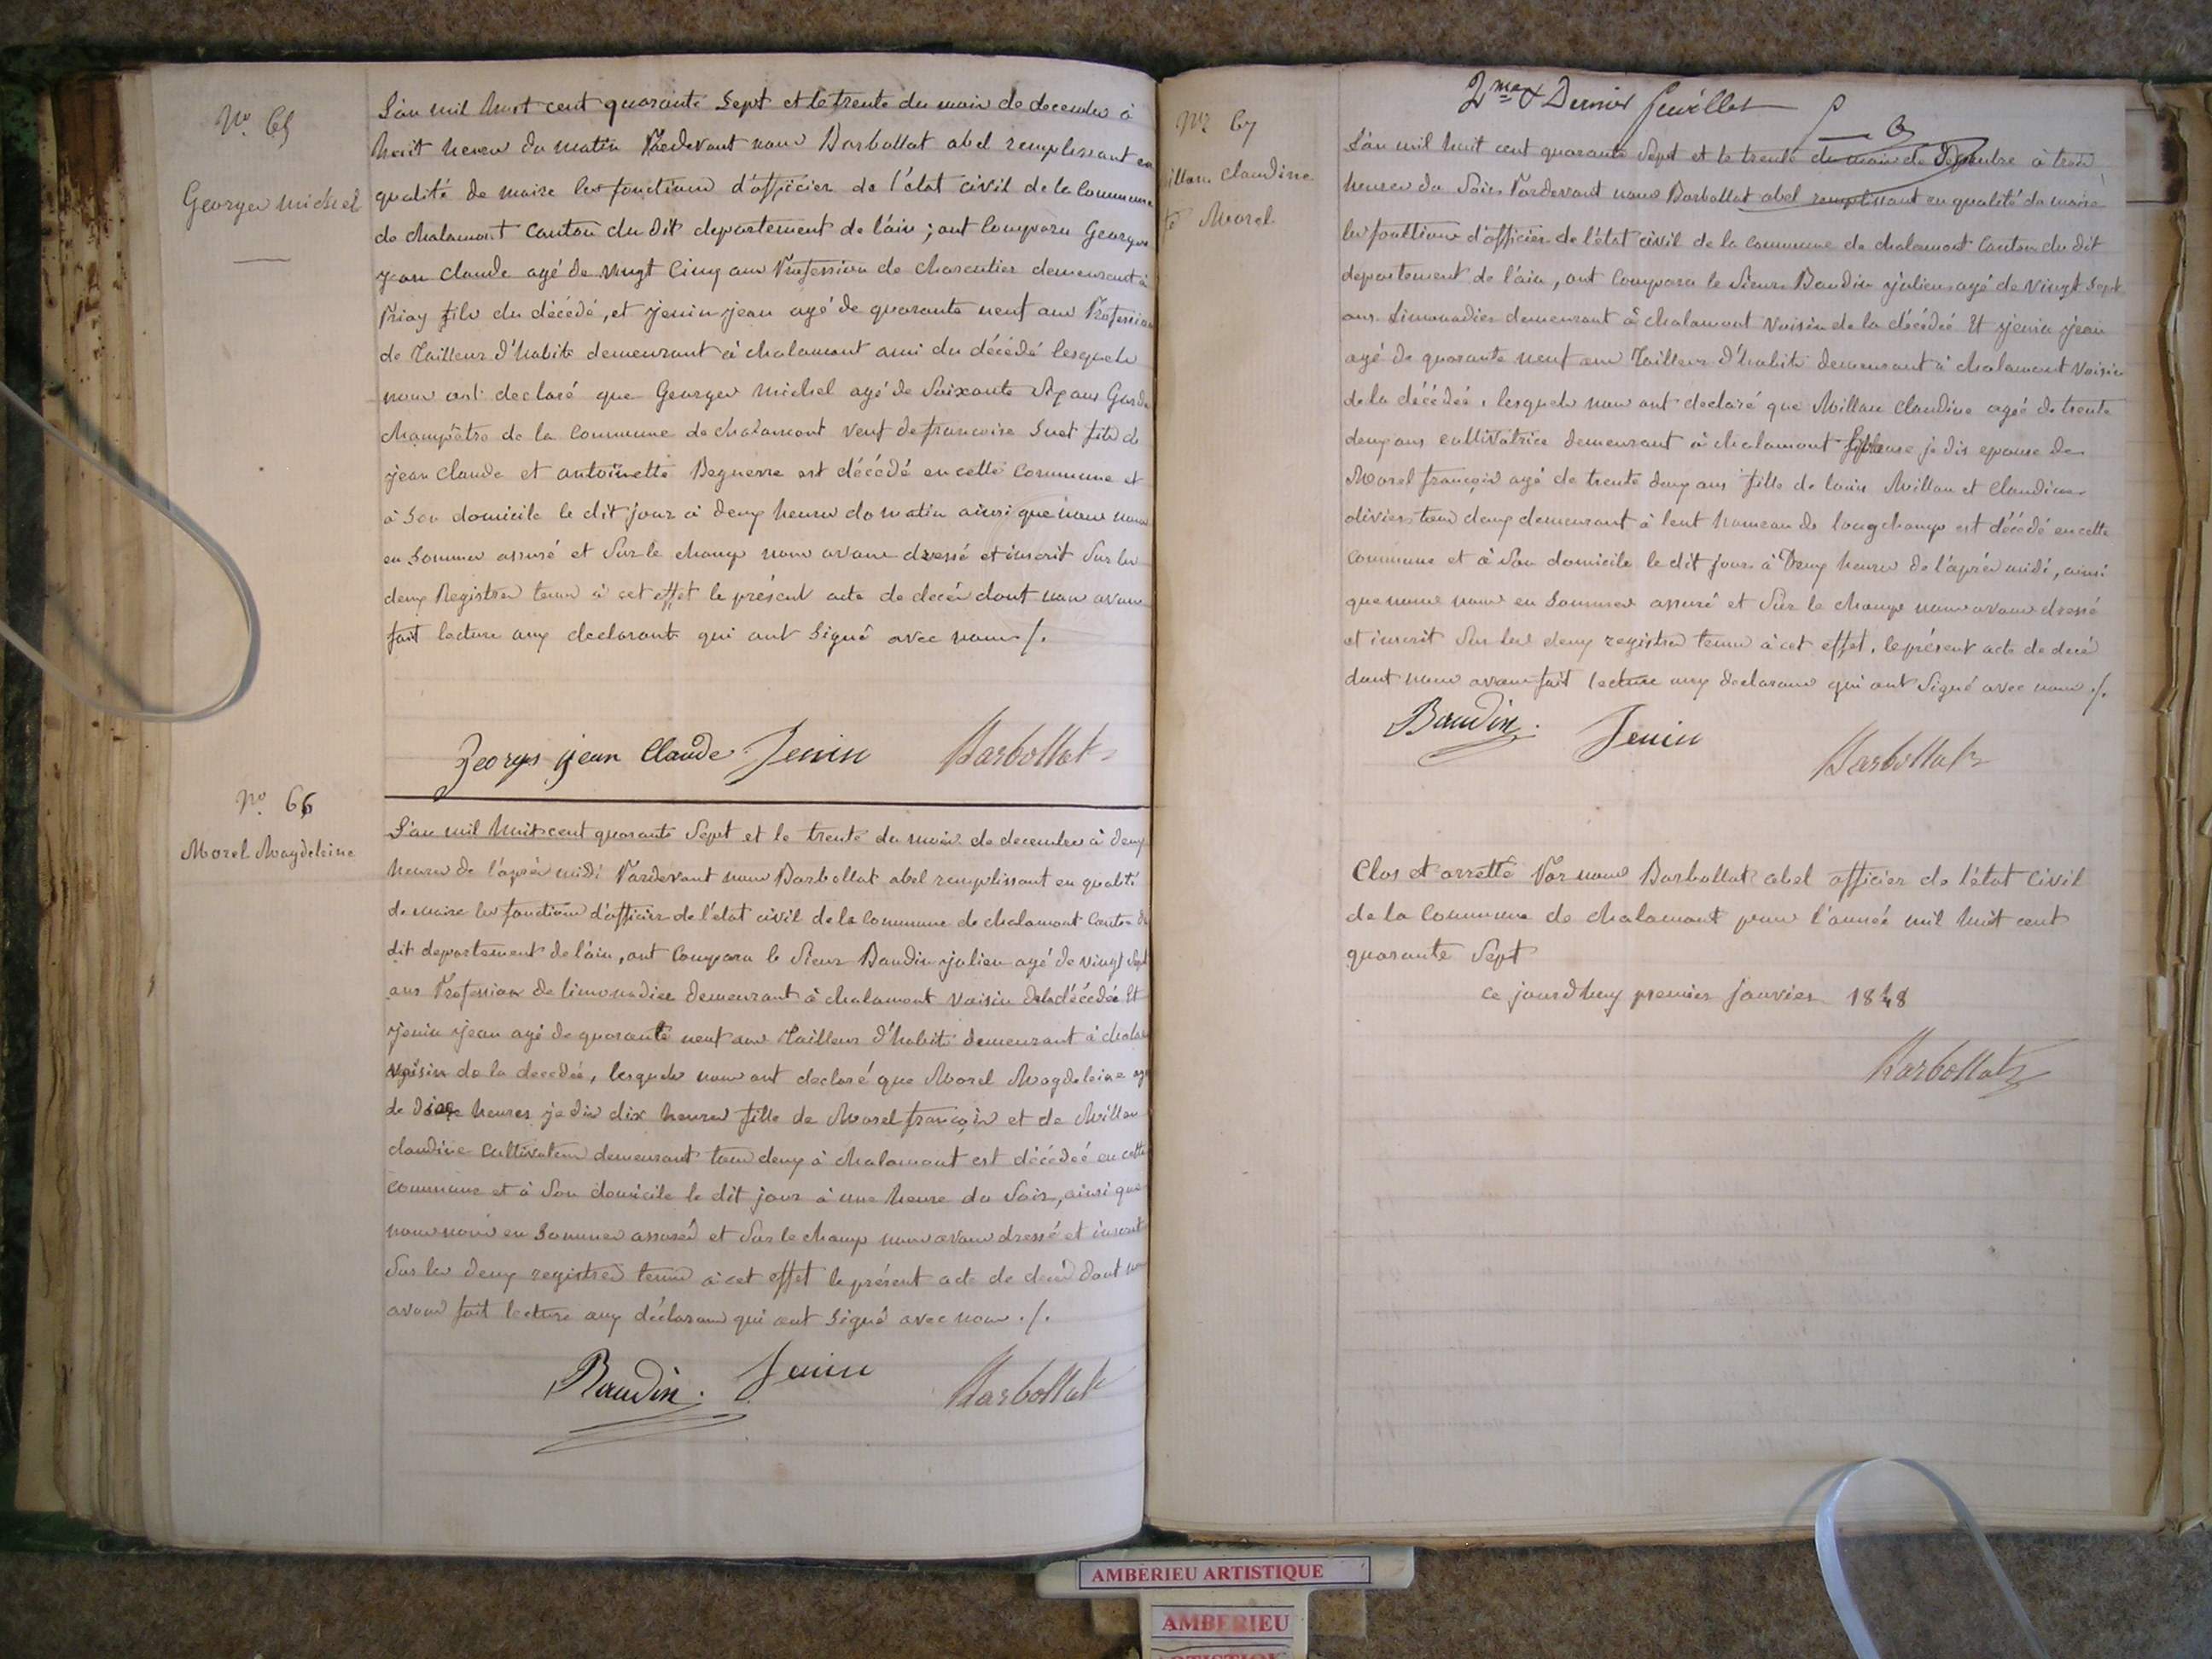 N° 65
Georges michel
L'an mil huit cent quarante Sept et le trente du mois de decembre à
huit heures du matin Pardevant nous Barbollat abel remplissant en
qualité de maire les fonctions d'officier de l'état civil de la Commune
de chalamont Canton du dit departement de l'ain ; ont Comparu Georges
jean Claude agé de vingt Cinq ans Profession de charcutier demeurant à
Priay fils du décédé, et jenin jean agé de quarante neuf ans Profession
de Tailleur d'habits demeurant à chalamont ami du décédé lesquels
nous ont declaré que Georges michel agé de Soixante Six ans Garde
champêtre de la Commune de chalamont veuf de francoise Suet fils de
jean Claude et antoinette Beguerre est décédé en cette Commune et
à Son domicile le dit jour à deux heures du matin ainsi que nous nous
en Sommes assuré et Sur le champ nous avons dressé et inscrit Sur les
deux Registres tenus à cet effet le présent acte de decès dont nous avons
fait lecture aux declarants qui ont Signé avec nous /.
Georges jean Claude Jenin Barbollat
N° 66
Morel Magdeleine
L'an mil huit cent quarante Sept et le trente du mois de decembre à deux
heures de l'après midi Pardevant nous Barbollat abel remplissant en qualité
de maire les fonctions d'officier de l'état civil de la Commune de chalamont Canton du
dit departement de l'ain, ont Comparu le Sieur Baudin julien agé de vingt Sept
ans Profession de limonadier demeurant à chalamont voisin de la décédée Et
jenin jean agé de quarante neuf ans Tailleur d'habits demeurant à
voisin de la decedée, lesquels nous ont declaré que Morel Magdeleine
de heures je dis dix heures fille de Morel françois et de Millan
claudine Cultivateurs demeurant tous deux à chalamont est décédée en cette
commune et à Son domicile le dit jour à une heure du Soir, ainsi que
nous nous en Sommes assurés et Sur le champ nous avons dressé et inscrit
Sur les deux registres tenus à cet effet le présent acte de decès dont nous
avons fait lecture aux déclarans qui ont Signé avec nous ./.
Baudin. Jenin Barbollat
2me & Dernier feuillet
N° 67
illan Claudine
Morel
L'an mil huit cent quarante Sept et le trente du mois de Decembre à trois
heures du Soir Pardevant nous Barbollat abel remplissant en qualité de maire
les fonctions d'officier de l'état civil de la Commune de chalamont Canton du dit
departement de l'ain, ont Comparu le Sieur Baudin julien agé de vingt Sept
ans Limonadier demeurant à chalamont voisin de la décédée Et jenin jean
agé de quarante neuf ans Tailleur d'habits demeurant à chalamont voisin
de la décédée, lesquels nous ont declaré que Millan Claudine agée de trente
deux ans cultivatrice demeurant à chalamont je dis epouse de
Morel françois agé de trente deux ans fille de louis Millan et Claudine
olivier tous deux demeurant à leut hameau de longchamp est décédé en cette
Commune et à Son domicile le dit jour à Deux heures de l'après midi, ainsi
que nous nous en Sommes assuré et Sur le champ nous avons dressé
et inscrit Sur les deux registres tenus à cet effet, le présent acte de decès
dont nous avons fait lecture aux declarans qui ont Signé avec nous ./.
Baudin. Jenin
Barbollat
Clos et arretté Par nous Barbollat abel officier de l'état Civil
de la Commune de chalamont pour l'année mil huit cent
quarante Sept
ce jourdhuy premier janvier 1848
Barbollat
AMBERIEU ARTISTIQUE
AMBERIEU
ARTISTIQUE